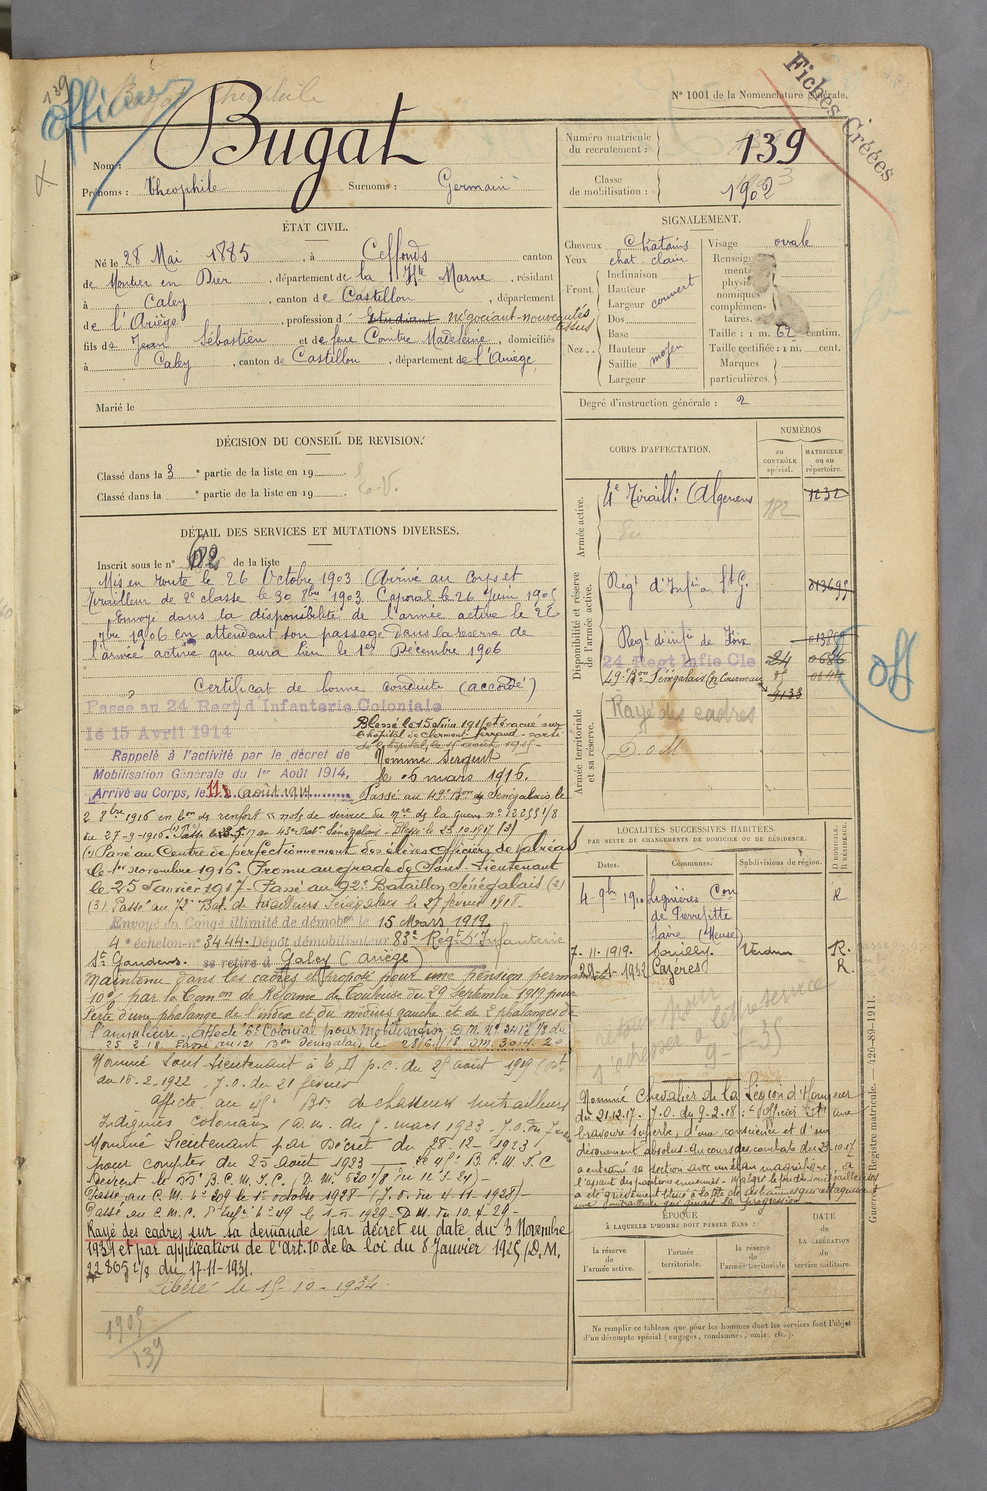 139
officier
Bugat Theophile
N° 1001 de la Nomenclature générale.
Fiches Créées
Nom : Bugat
Prénoms : Théophile Surnoms : Germain
Numéro matricule
du recrutement : 139
Classe
de mobilisation : 1902
ÉTAT CIVIL.
Né le 28 Mai 1885, à Ceffonds canton
de Montier en Dier, département de la Hte Marne, résidant
à Galey, canton de Castillon, département
de l'Ariège, profession d' Etudiant négociant-nouveautés
tissus
fils de Jean Sébastien et de feue Contre Madeleine, domiciliés
à Galey, canton de Castillon, département de l'Ariège
Marié le
SIGNALEMENT.
Cheveux Chatains
Yeux chat clair
Front. Inclinaison
Hauteur
Largeur couvert
Nez. Dos
Base
Hauteur
Saillie moyen
Largeur
Visage ovale
Renseigne-
ments
physio-
nomiques
complémen-
taires.
Taille : 1 m. 62 centim.
Taille rectifiée : 1 m. cent.
Marques
particulières.
Degré d'instruction générale : 2
DÉCISION DU CONSEIL DE REVISION.
Classé dans la 3e partie de la liste en 19
E.V.
Classé dans la e partie de la liste en 19
DÉTAIL DES SERVICES ET MUTATIONS DIVERSES.
Inscrit sous le n° 182 de la liste
Mis en route le 26 Octobre 1903 Arrivé au Corps et
Tirailleur de 2e classe le 30 8bre 1903. Caporal le 26 Juin 1905
Envoyé dans la disponibilité de l'armée active le 26
7bre 1906 en attendant son passage dans la reserve de
l'armée active qui aura lieu le 1er Décembre 1906
Certificat de bonne conduite (accordé)
Passé au 24 Regt d'Infanterie Coloniale
le 15 Avril 1914
Rappelé à l'activité par le décret de
Mobilisation Générale du 1er Août 1914,
Arrivé au Corps, le 11 août 1914
Blessé le 15 Juin 1915 et évacué sur
l'hôpital de Clermont-Ferrand - sorti
de l'hôpital, le
Nommé Sergent
le 06 mars 1916.
Passé au 49e Bon de Sénégalais le
2 8bre 1916 en bon de renfort note de service du mre de la guerre n° 12255 1/8
du 27-9-1916. Blessé le 23.10.1917 (3)
Passé au Centre de perfectionnement des élèves officiers de
le 1er novembre 1916. Promu au grade de Sous-Lieutenant
le 25 Janvier 1917 - Passé au 92e Bataillon Sénégalais (2)
(3) Passé au 72e Bat. de tirailleurs Sénégalais le 27 février 1918.
Envoyé en Congé illimité de démobon le 15 Mars 1919
4e échelon n° 3444. Dépôt démobilisateur 83e Regt d'Infanterie
St Gaudens. se retire à Galey (Ariège)
Maintenu dans les cadres et proposé pour une pension perm
10% par la Comon de Réforme de Toulouse du 29 Septembre 1919 pour
Perte d'une phalange de l'index et du médius gauche et de 2 phalanges de
l'annulaire. Affecté 6e Colonial pour mobilisation D.M. N° 3412 1/8 du
25.2.18. Passé au 121 Bon Sénégalais le 28/6/18 D.M. 3014.20
Nommé Sous-Lieutenant à T.D p.c. du 25 août 1919
du 16-2-1922 J.O. du 21 février
affecté au Bon de chasseurs mitrailleurs
Indigènes coloniaux
Nommé Lieutenant par Décret du 28-12-1923
pour compter du 25 Août 1923
Devient le B.C.M.I.C.
Passé au C.M. n° 209 le 1er octobre 1928 (J.O. du 4-11-1928)
Passé au C.M.C. D'Infie n° 49 le 1-5-1929 D.M. du 10.4.29
Rayé des cadres sur sa demande par décret en date du 3 Novembre
1931 et par application de l'art. 10 de la loi du 8 Janvier 1925 (D.M.
22865 1/8 du 17-11-1931.
Libéré le 15-10-1934.
1905
139
CORPS D'AFFECTATION.
NUMÉROS
au
CONTRÔLE
spécial.
MATRICULE
ou au
répertoire.
Armée active.
4e Tiraill: Algériens 182 1232
Disponibilité et réserve
de l'armée active.
Régt d'Infie St G.
Regt d'infie de Foix
24 Regt Infie Cle 24
49e Bon Sénégalais (Courneau)
Armée territoriale
et sa réserve.
Rayé des cadres
D.O.M.
off
LOCALITÉS SUCCESSIVES HABITÉES
PAR SUITE DE CHANGEMENTS DE DOMICILE OU DE RÉSIDENCE.
Dates. Communes. Subdivisions de région. D. DOMICILE. R. RÉSIDENCE.
4-9bre 1910 Lignières Con
de Pierrefitte
s/aire (Meuse) R
7-11-1919. Souilly Verdun R.
28-1-1932 Cazères R.
Nommé Chevalier de la Légion d'Honneur
du 21.12.17. J.O. du 9-2-18 : "Officier d'une
bravoure superbe, d'une conscience et d'un
dévouement absolus. Au cours des combats du 23-10-17
a entrainé sa section avec un élan magnifique, à
l'assaut des positions ennemies - malgré le feu des mitrailleuses
a été grièvement blessé à la tête de ses hommes en attaquant
une mitrailleuse qui gênait la progression
ÉPOQUE
À LAQUELLE L'HOMME DOIT PASSER DANS :
DATE
de
LA LIBÉRATION
du
service militaire.
la réserve
de
l'armée active.
l'armée
territoriale.
la réserve
de
l'armée territoriale
Ne remplir ce tableau que pour les hommes dont les services font l'objet
d'un décompte spécial (engagés, condamnés, omis, etc.).
Guerre. — Registre matricule. — 426-89-1911.